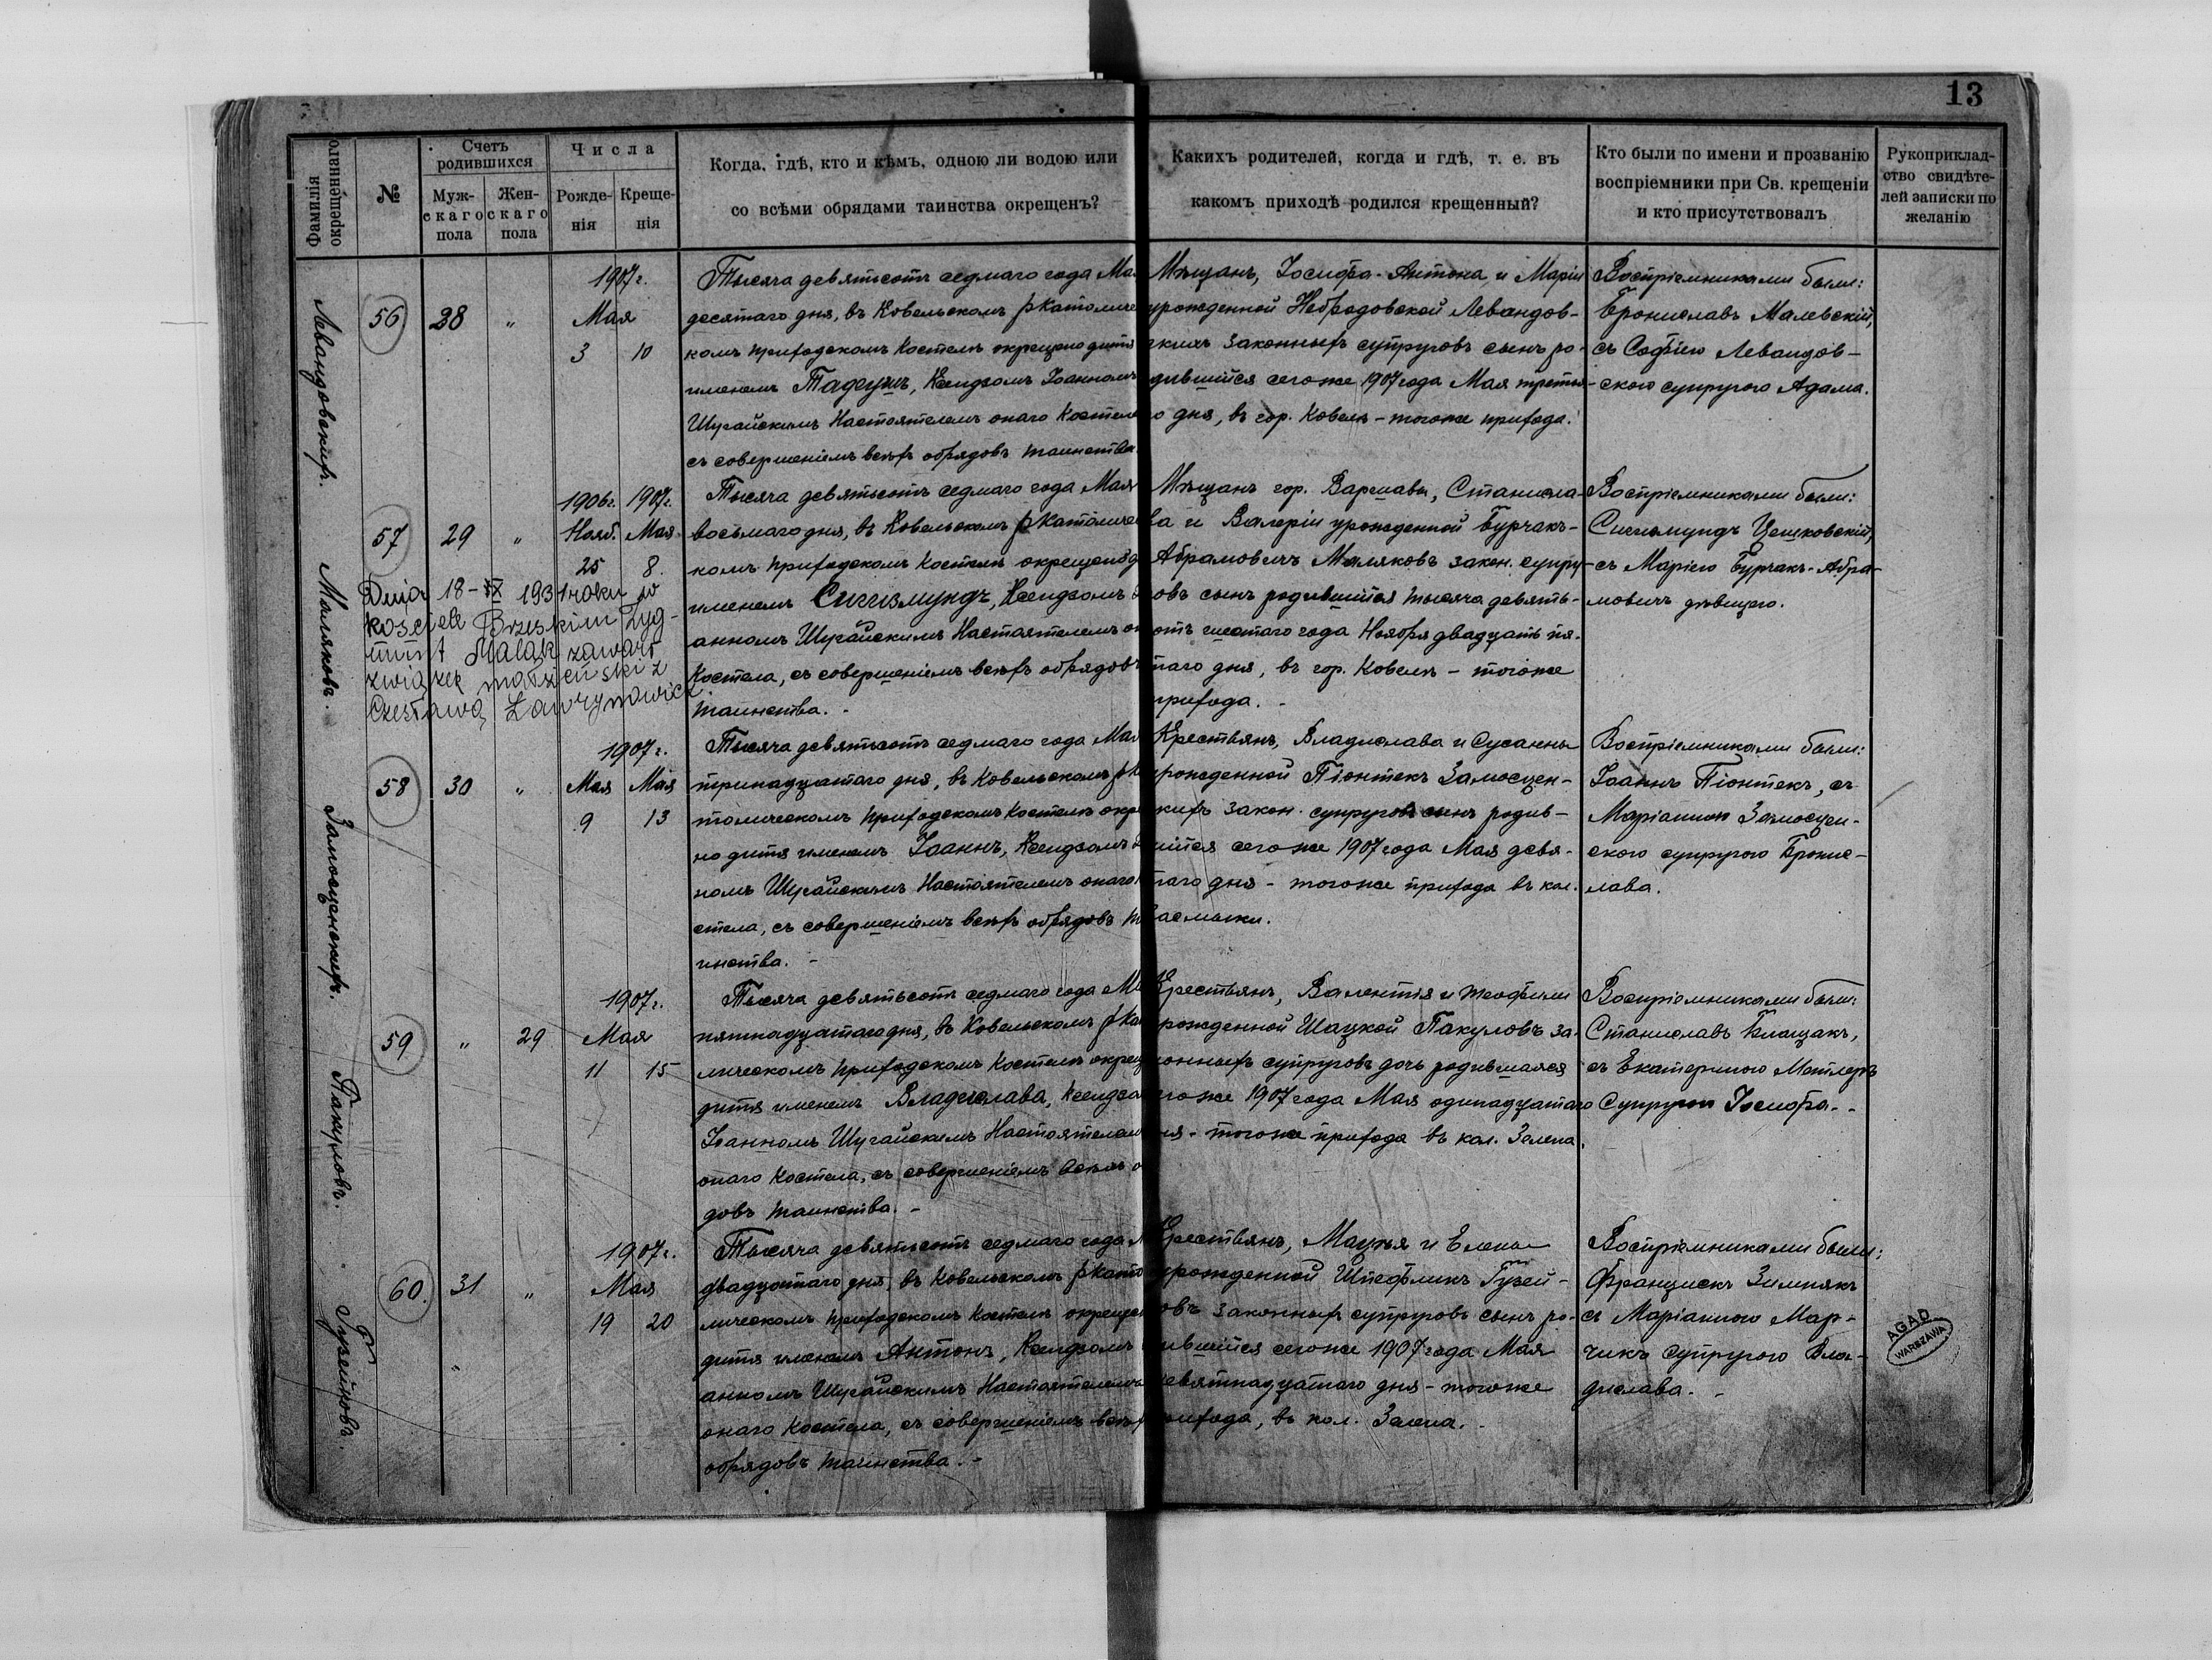 13
Фамилія окрещеннаго
№
Счетъ родившихся
Муж-скаго пола
Жен-скаго пола
Числа
Рожде-нія
Креще-нія
Когда, гдѣ, кто и кѣмъ, одною ли водою или
со всѣми обрядами таинства окрещенъ?
Какихъ родителей, когда и гдѣ, т. е. въ
какомъ приходѣ родился крещенный?
Кто были по имени и прозванію
воспріемники при Св. крещеніи
и кто присутствовалъ
Рукоприклад-
ство свидѣте-
лей записки по
желанію
Левандовскихъ.
56
28
"
1907 г.
Мая
3 10
Тысяча девятьсотъ седмаго года Ма
десятаго дня, въ Ковельскомъ р Католиче
комъ приходскомъ Костелѣ окрещено дитя
именемъ Тадеушъ, Ксендзомъ Іоанномъ
Шугайскимъ Настоятелемъ онаго Костела
съ совершеніемъ всѣхъ обрядовъ таинства
Мѣщанъ, Іосифа-Антона и Маріи
урожденной Левандов-
скихъ законныхъ супруговъ сынъ ро-
дившійся сегоже 1907 года Мая третья-
о дня, въ гор. Ковелѣ - тогоже прихода.
Воспріемниками были:
Брониславъ Малевскій,
съ Софіею Левандов-
скою супругою Адама.
Маляковъ.
57
29
"
1906 г. 1907 г.
Нояб. Мая
25 8.
Dnia 18-IX 1931 roku w
kościele Brzeskim Zyg-
munt Malak zawarł
związek małżeński z
Czesławą Ławrynowicz
Тысяча девятьсотъ седмаго года Мая
восьмаго дня, въ Ковельскомъ р Католичес
комъ приходскомъ Костелѣ окрещено д
именемъ Сигизмундъ, Ксендзомъ І
анномъ Шугайскимъ Настоятелемъ он
Костела, съ совершеніемъ всѣхъ обрядовъ
таинства. -
Мѣщанъ гор. Варшавы, Станисла-
ва и Валеріи урожденной Бурчакъ-
Абрамовичъ Маляковъ закон. супру-
овъ сынъ родившійся тысяча девять-
отъ шестаго года Ноября двадцать пя-
таго дня, въ гор. Ковелѣ - тогоже
прихода. -
Воспріемниками были:
Сигизмундъ Цешковскій,
съ Маріею Бурчакъ-Абра-
мовичъ дѣвицею.
Замосценскихъ.
58
30
"
1907 г.
Мая Мая
9 13
Тысяча девятьсотъ седмаго года Мая
тринадцатаго дня, въ Ковельскомъ р Ка
толическомъ приходскомъ Костелѣ окре
но дитя именемъ Іоаннъ, Ксендзомъ І
номъ Шугайскимъ Настоятелемъ онаго
стела, съ совершеніемъ всѣхъ обрядовъ та
инства. -
Крестьянъ, Владислава и Сусанны
рожденной Піонтекъ Замосцен-
кихъ закон. супруговъ сынъ родив-
шійся сегоже 1907 года Мая девя-
таго дня - тогоже прихода въ кол.
Воспріемниками были:
Іоаннъ Піонтекъ, съ
Маріанною Замосцен-
скою супругою Брони-
слава.
Пакуловъ.
59
"
29
1907 г.
Мая
11 15
Тысяча девятьсотъ седмаго года М
пятнадцатаго дня, въ Ковельскомъ р Ка
лическомъ приходскомъ Костелѣ окрещ
дитя именемъ Владислава, Ксендзо
Іоанномъ Шугайскимъ Настоятелем
онаго Костела, съ совершеніемъ всѣхъ о
довъ таинства. -
Крестьянъ, Валентія и Теофили
рожденной Шацкой Пакуловъ за-
конныхъ супруговъ дочь родившаяся
егоже 1907 года Мая одинадцатаго
ня - тогоже прихода въ кол. Зелена.
Воспріемниками были:
Станиславъ Блащакъ,
съ Екатериною
Супругою Іосифа. -
Гузейновъ.
60.
31
"
1907 г.
Мая
19 20
Тысяча девятьсотъ седмаго года М
двадцатаго дня, въ Ковельскомъ р Като
лическомъ приходскомъ Костелѣ окрещен
дитя именемъ Антонъ, Ксендзомъ І
анномъ Шугайскимъ Настоятелемъ
онаго Костела, съ совершеніемъ всѣхъ
обрядовъ таинства. -
Крестьянъ, Мацѣя и Елены
урожденной Гузей-
овъ законныхъ супруговъ сынъ ро-
дившійся сегоже 1907 года Мая
девятнадцатаго дня - тогоже
прихода, въ кол. Зелена. -
Воспріемниками были:
Францискъ Зимнякъ
съ Маріанною Мар-
чикъ супругою Вла-
дислава. -
AGAD
WARSZAWA